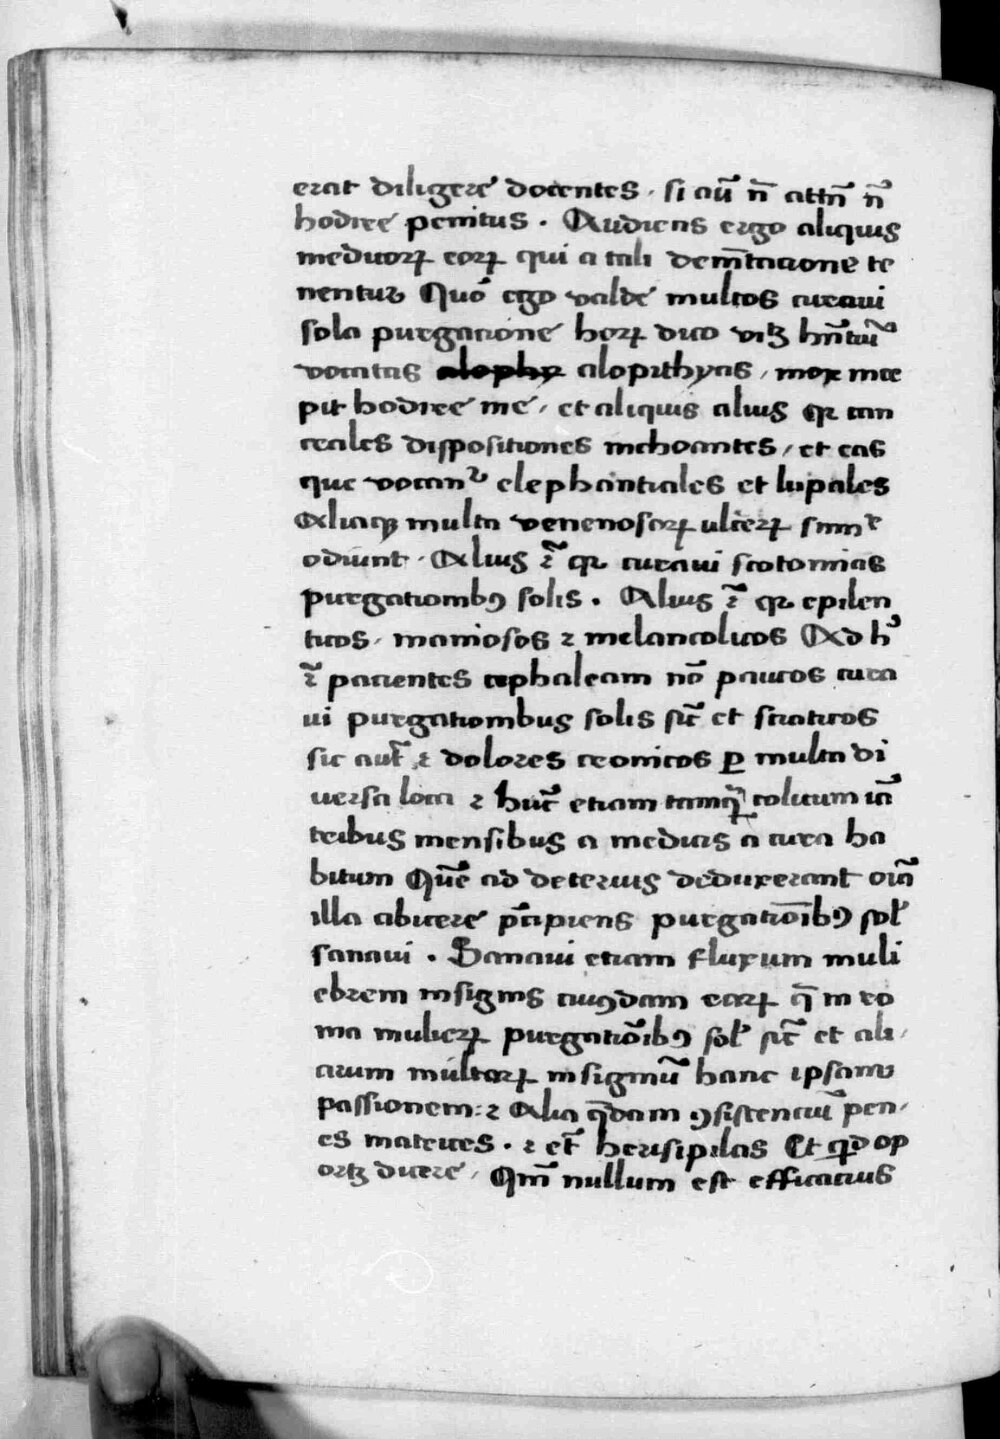 erat diligere docentes . si aū n̄ attn̄ n̄
hodire penitus . Audiens ergo aliquis
medicorꝝ eorꝝ qui a tali dem̄tacione te
nentur Quō ego valde multos curaui
sola purgatione horꝝ dico vitꝫ hn̄tiū
vocatas alophy alopithyas , mox ince
pit hodire me , et aliquis alius ꝙ can
creales dispositiones inchoantes , et eas
que vocant᷑ elephantiales et lupales
Aliaqꝫ multa venenosorꝝ ulcerꝝ summe
odiunt . Alius r̄ ꝙ curaui scotomias
purgationibꝰ solis . Alius r̄ ꝙ epilen
ticos , maniosos ⁊ melancolicos Ad h̄
r̄ pacientes cephaleam nō paucos cura
ui purgationibus solis sic̄ et sciaticos
sic aut̄ ⁊ dolores cronicos ꝑ multa di
versa loca ⁊ hūc etiam tamꝙ̄ colicum iā
tribus mensibus a medicis ī cura ha
bitum Quē ad deterius deduxerant oīa
illa abicere p̄cipiens purgatiōibꝰ sol̄
sanaui . Sanaui etiam fluxum muli
ebrem insignis cuiꝰdam earꝝ q̄ in ro
ma mulierꝝ purgatiōibꝰ sol̄ sic̄ et ali,
arum multarꝝ insigniū hanc ipsam
passionem : ⁊ Alia q̄dam ꝯsistenciū pen,
es matrices . ⁊ et̄ herisipilas Et qͥd op
ortꝫ dicere , Qm̄ nullum est efficacius